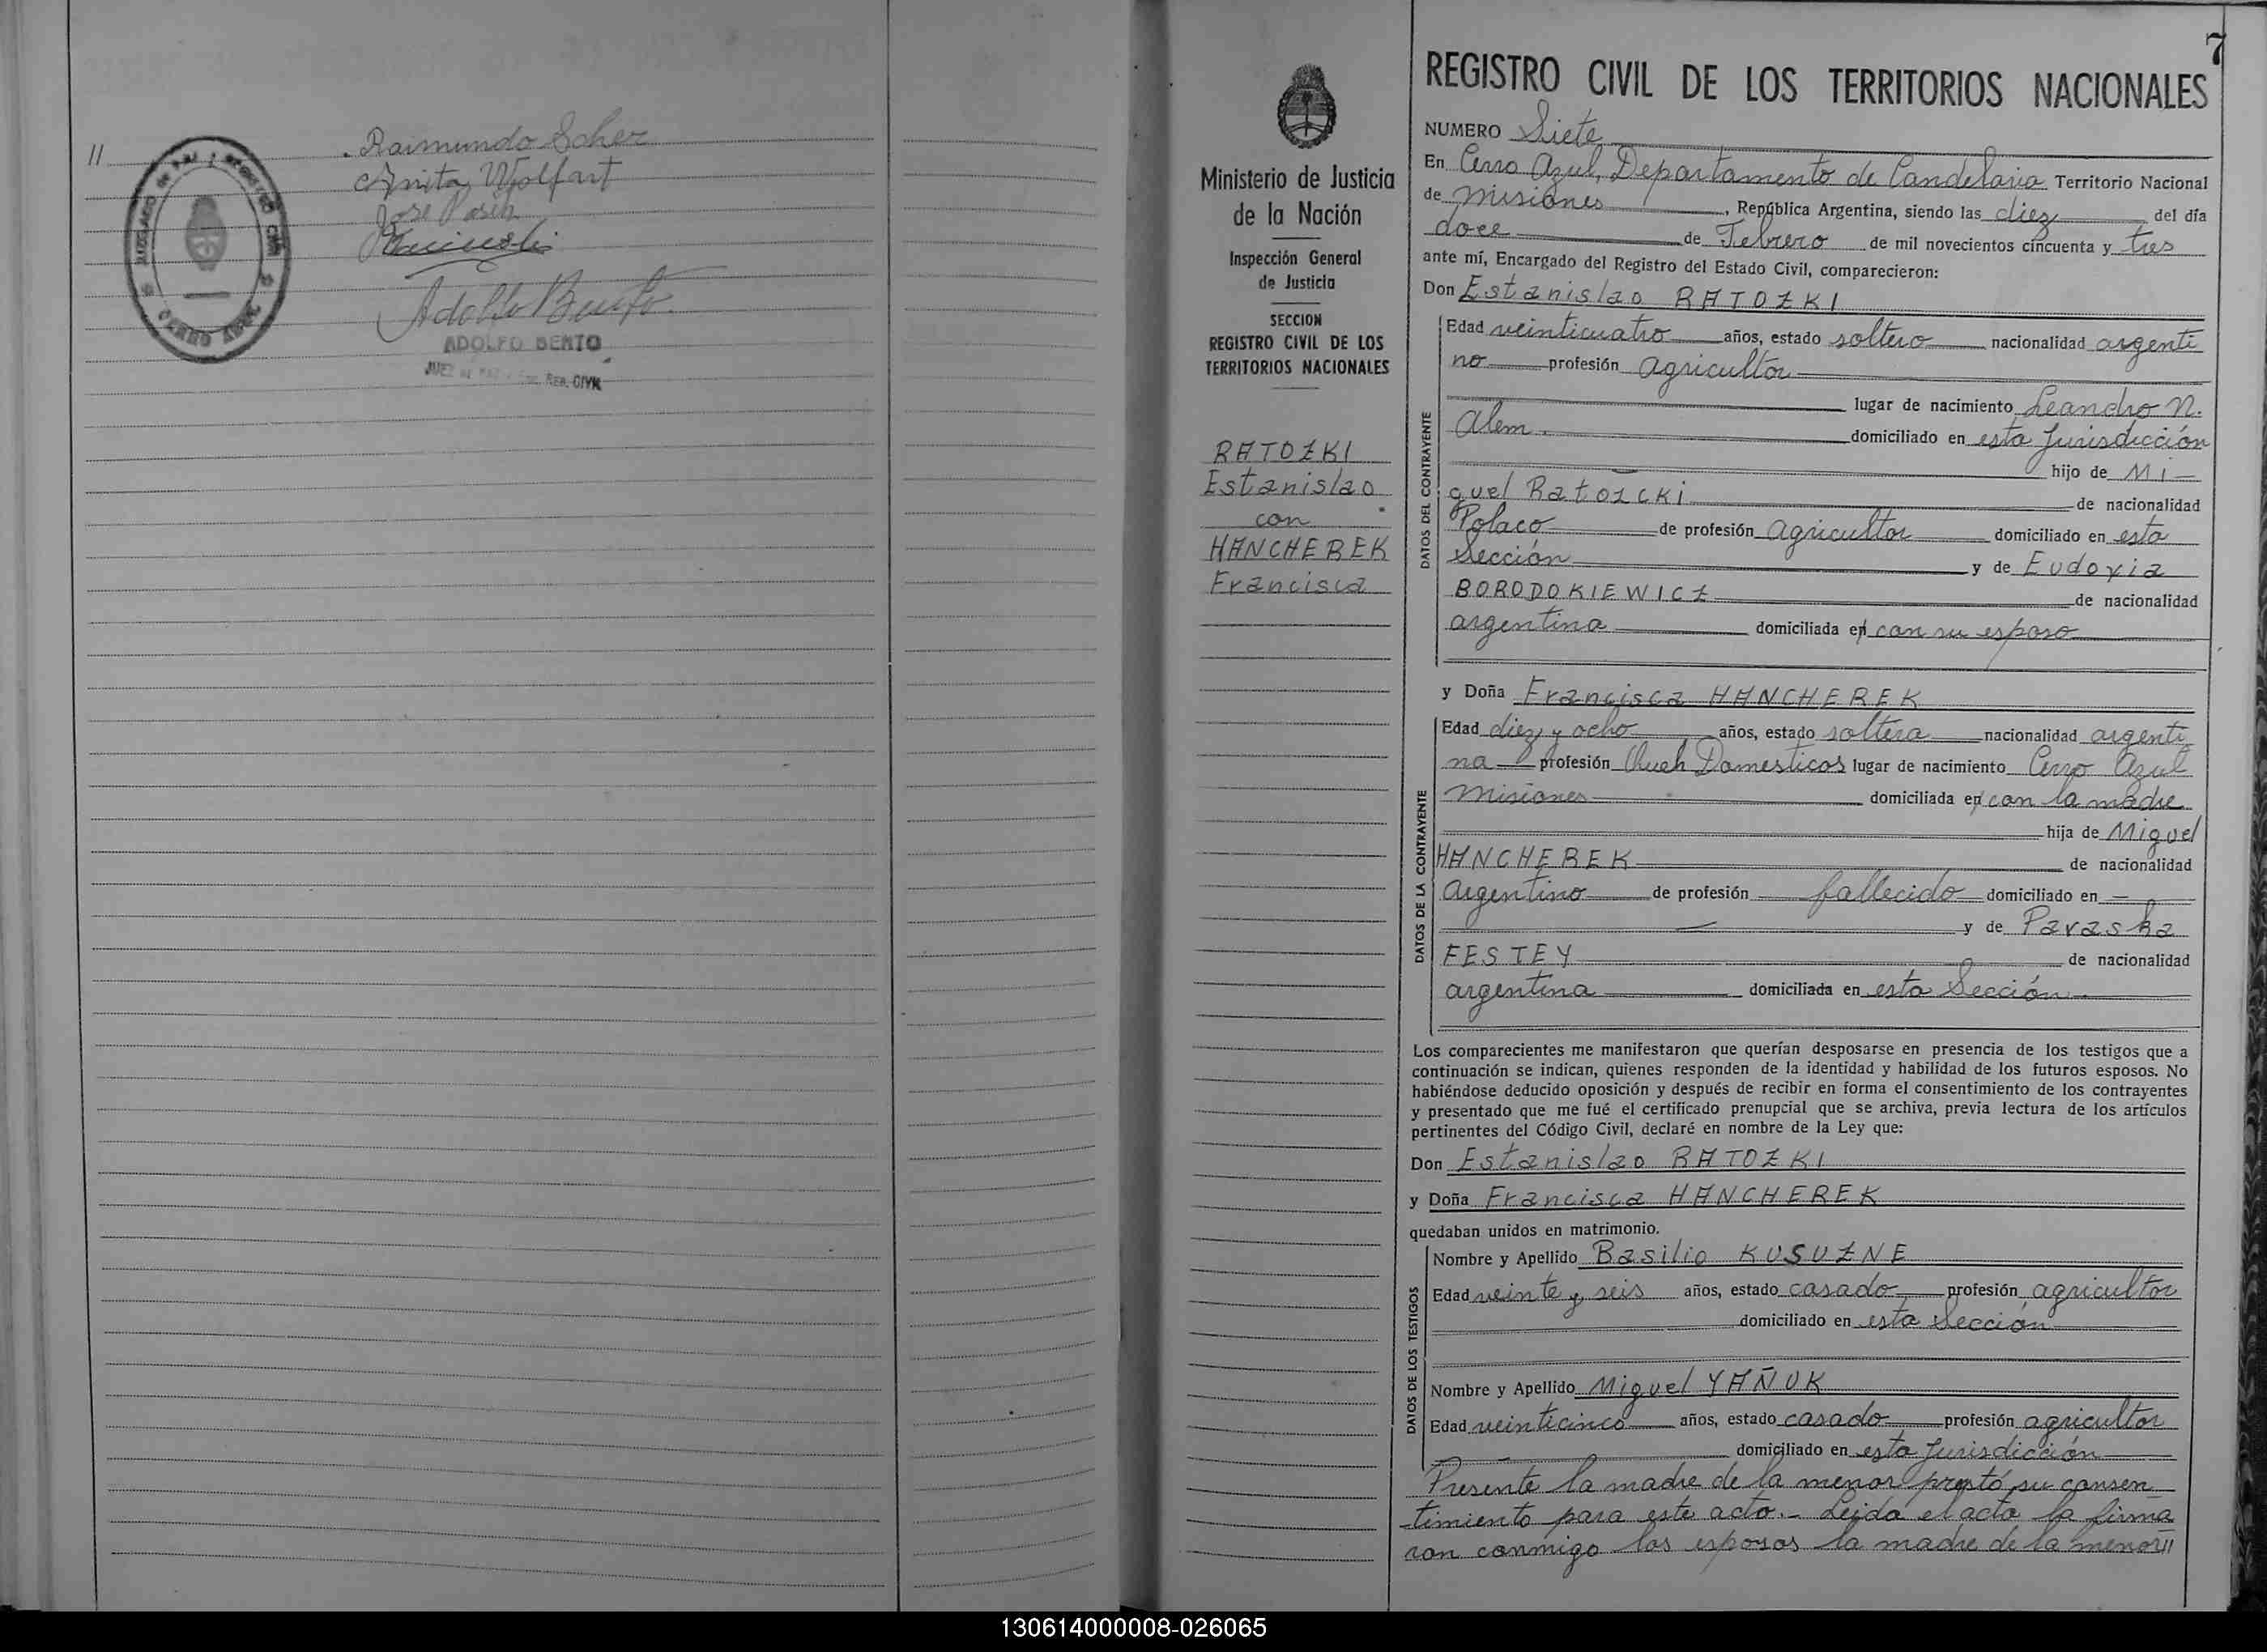 11
Raimundo Scher
Anita Wolfart
José
Adolfo Bento
ADOLFO BENTO
JUEZ DE PAZ REG. CIVIL
JUZGADO DE PAZ Y REGISTRO CIVIL
CERRO AZUL
7
Ministerio de Justicia
de la Nación
Inspección General
de Justicia
SECCION
REGISTRO CIVIL DE LOS
TERRITORIOS NACIONALES
RATOZKI
Estanislao
con
HANCHEREK
Francisca
REGISTRO CIVIL DE LOS TERRITORIOS NACIONALES
NUMERO Siete
En Cerro Azul, Departamento de Candelaria Territorio Nacional
de Misiones, República Argentina, siendo las diez del día
doce de Febrero de mil novecientos cincuenta y tres
ante mí, Encargado del Registro del Estado Civil, comparecieron:
Don Estanislao RATOZKI
DATOS DEL CONTRAYENTE
Edad veinticuatro años, estado soltero nacionalidad argenti
no profesión Agricultor
lugar de nacimiento Leandro N.
Alem. domiciliado en esta Jurisdicción
hijo de Mi-
guel Ratozcki de nacionalidad
Polaco de profesión Agricultor domiciliado en esta
Sección y de Eudoxia
BORODOKIEWICZ de nacionalidad
argentina domiciliada en con su esposo
y Doña Francisca HANCHEREK
DATOS DE LA CONTRAYENTE
Edad diez y ocho años, estado soltera nacionalidad argenti
na profesión Queh Domesticos lugar de nacimiento Cerro Azul
Misiones domiciliada en con la madre
hija de Miguel
HANCHEREK de nacionalidad
Argentino de profesión fallecido domiciliado en —
— y de Paraska
FESTEY de nacionalidad
argentina domiciliada en esta Sección
Los comparecientes me manifestaron que querían desposarse en presencia de los testigos que a
continuación se indican, quienes responden de la identidad y habilidad de los futuros esposos. No
habiéndose deducido oposición y después de recibir en forma el consentimiento de los contrayentes
y presentado que me fué el certificado prenupcial que se archiva, previa lectura de los artículos
pertinentes del Código Civil, declaré en nombre de la Ley que:
Don Estanislao RATOZKI
y Doña Francisca HANCHEREK
quedaban unidos en matrimonio.
DATOS DE LOS TESTIGOS
Nombre y Apellido Basilio KUSUZNE
Edad veinte y seis años, estado casado profesión agricultor
domiciliado en esta Sección
Nombre y Apellido Miguel YAÑUK
Edad veinticinco años, estado casado profesión agricultor
domiciliado en esta Jurisdicción
Presente la madre de la menor prestó su consen
timiento para este acto.- Leída el acta la firma
ron conmigo los esposos la madre de la menor//
130614000008-026065